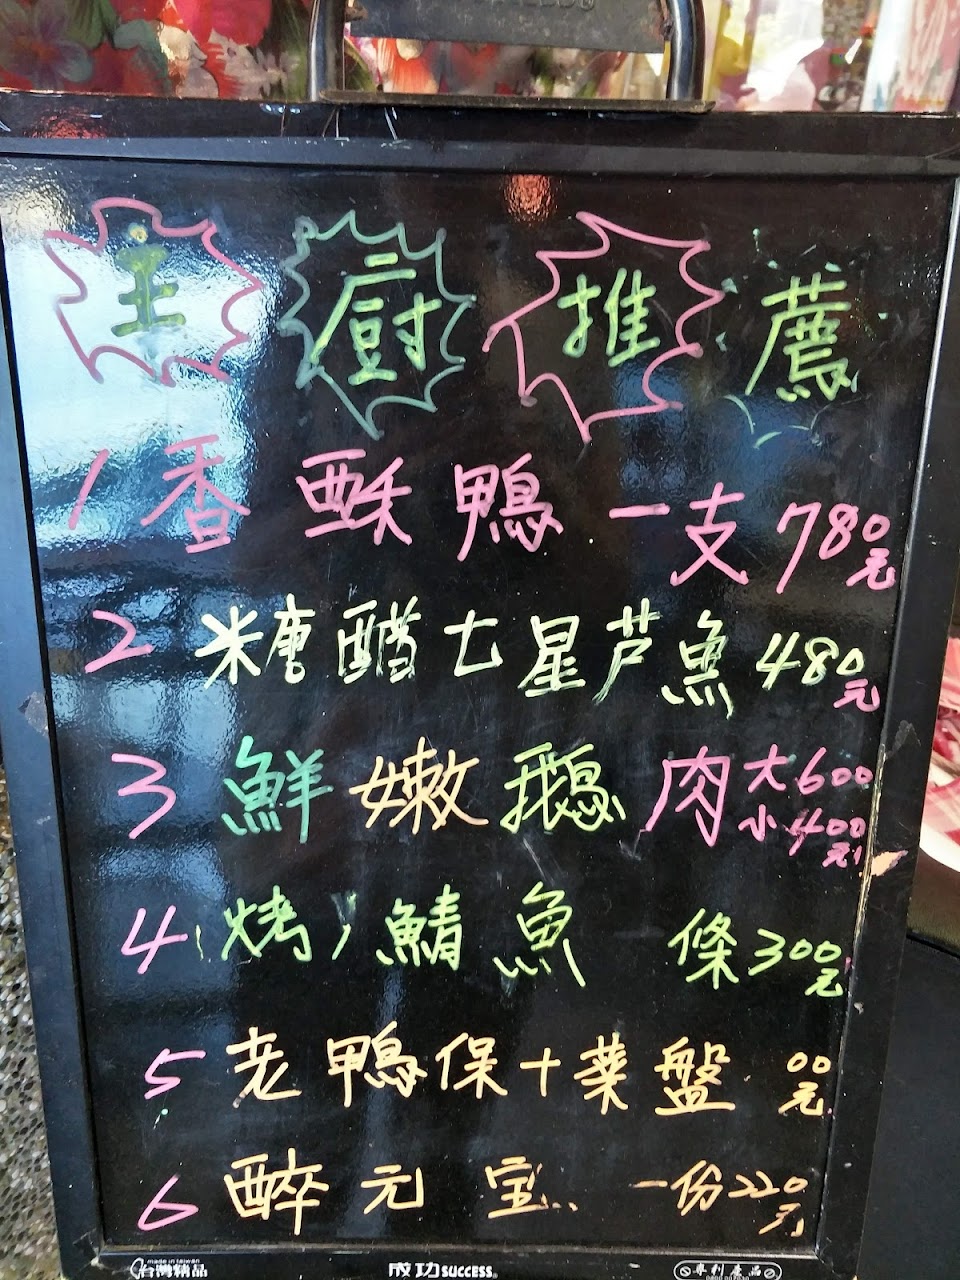 主廚推薦
1 香酥鴨 一支 780元
2 糖醋七星芦魚 480元
3 鮮嫩鵝肉 大600 小400元
4 (烤)鯖魚 條300元
5 老鴨保+菜盤 00元
6 醉元宝 一份220元
made in taiwan
台灣精品 成功SUCCESS® 專利產品